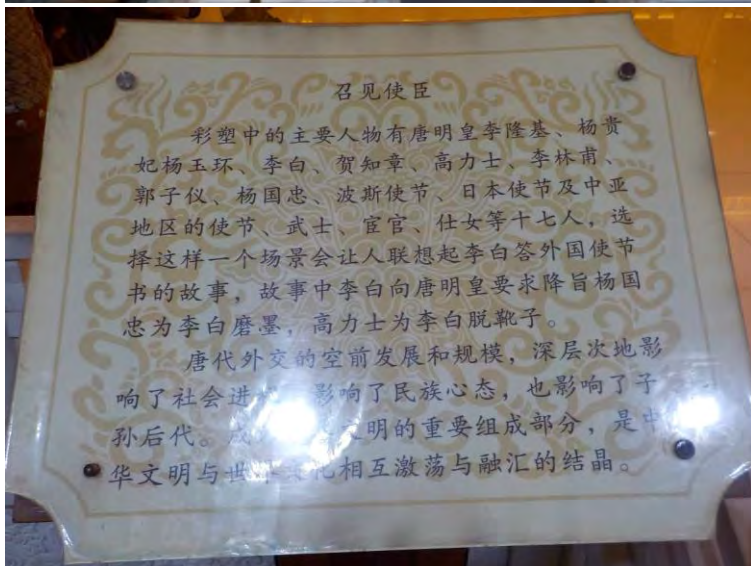 召见使臣
彩塑中的主要人物有唐明皇李隆基、杨贵
妃杨玉环、李白、贺知章、高力士、李林甫、
郭子仪、杨国忠、波斯使节、日本使节及中亚
地区的使节、武士、宦官、仕女等十七人，选
择这样一个场景会让人联想起李白答外国使节
书的故事，故事中李白向唐明皇要求降旨杨国
忠为李白磨墨，高力士为李白脱靴子。
唐代外交的空前发展和规模，深层次地影
响了社会进 影响了民族心态，也影响了子
孙后代。 文明的重要组成部分，是中
华文明与世 化相互激荡与融汇的结晶。